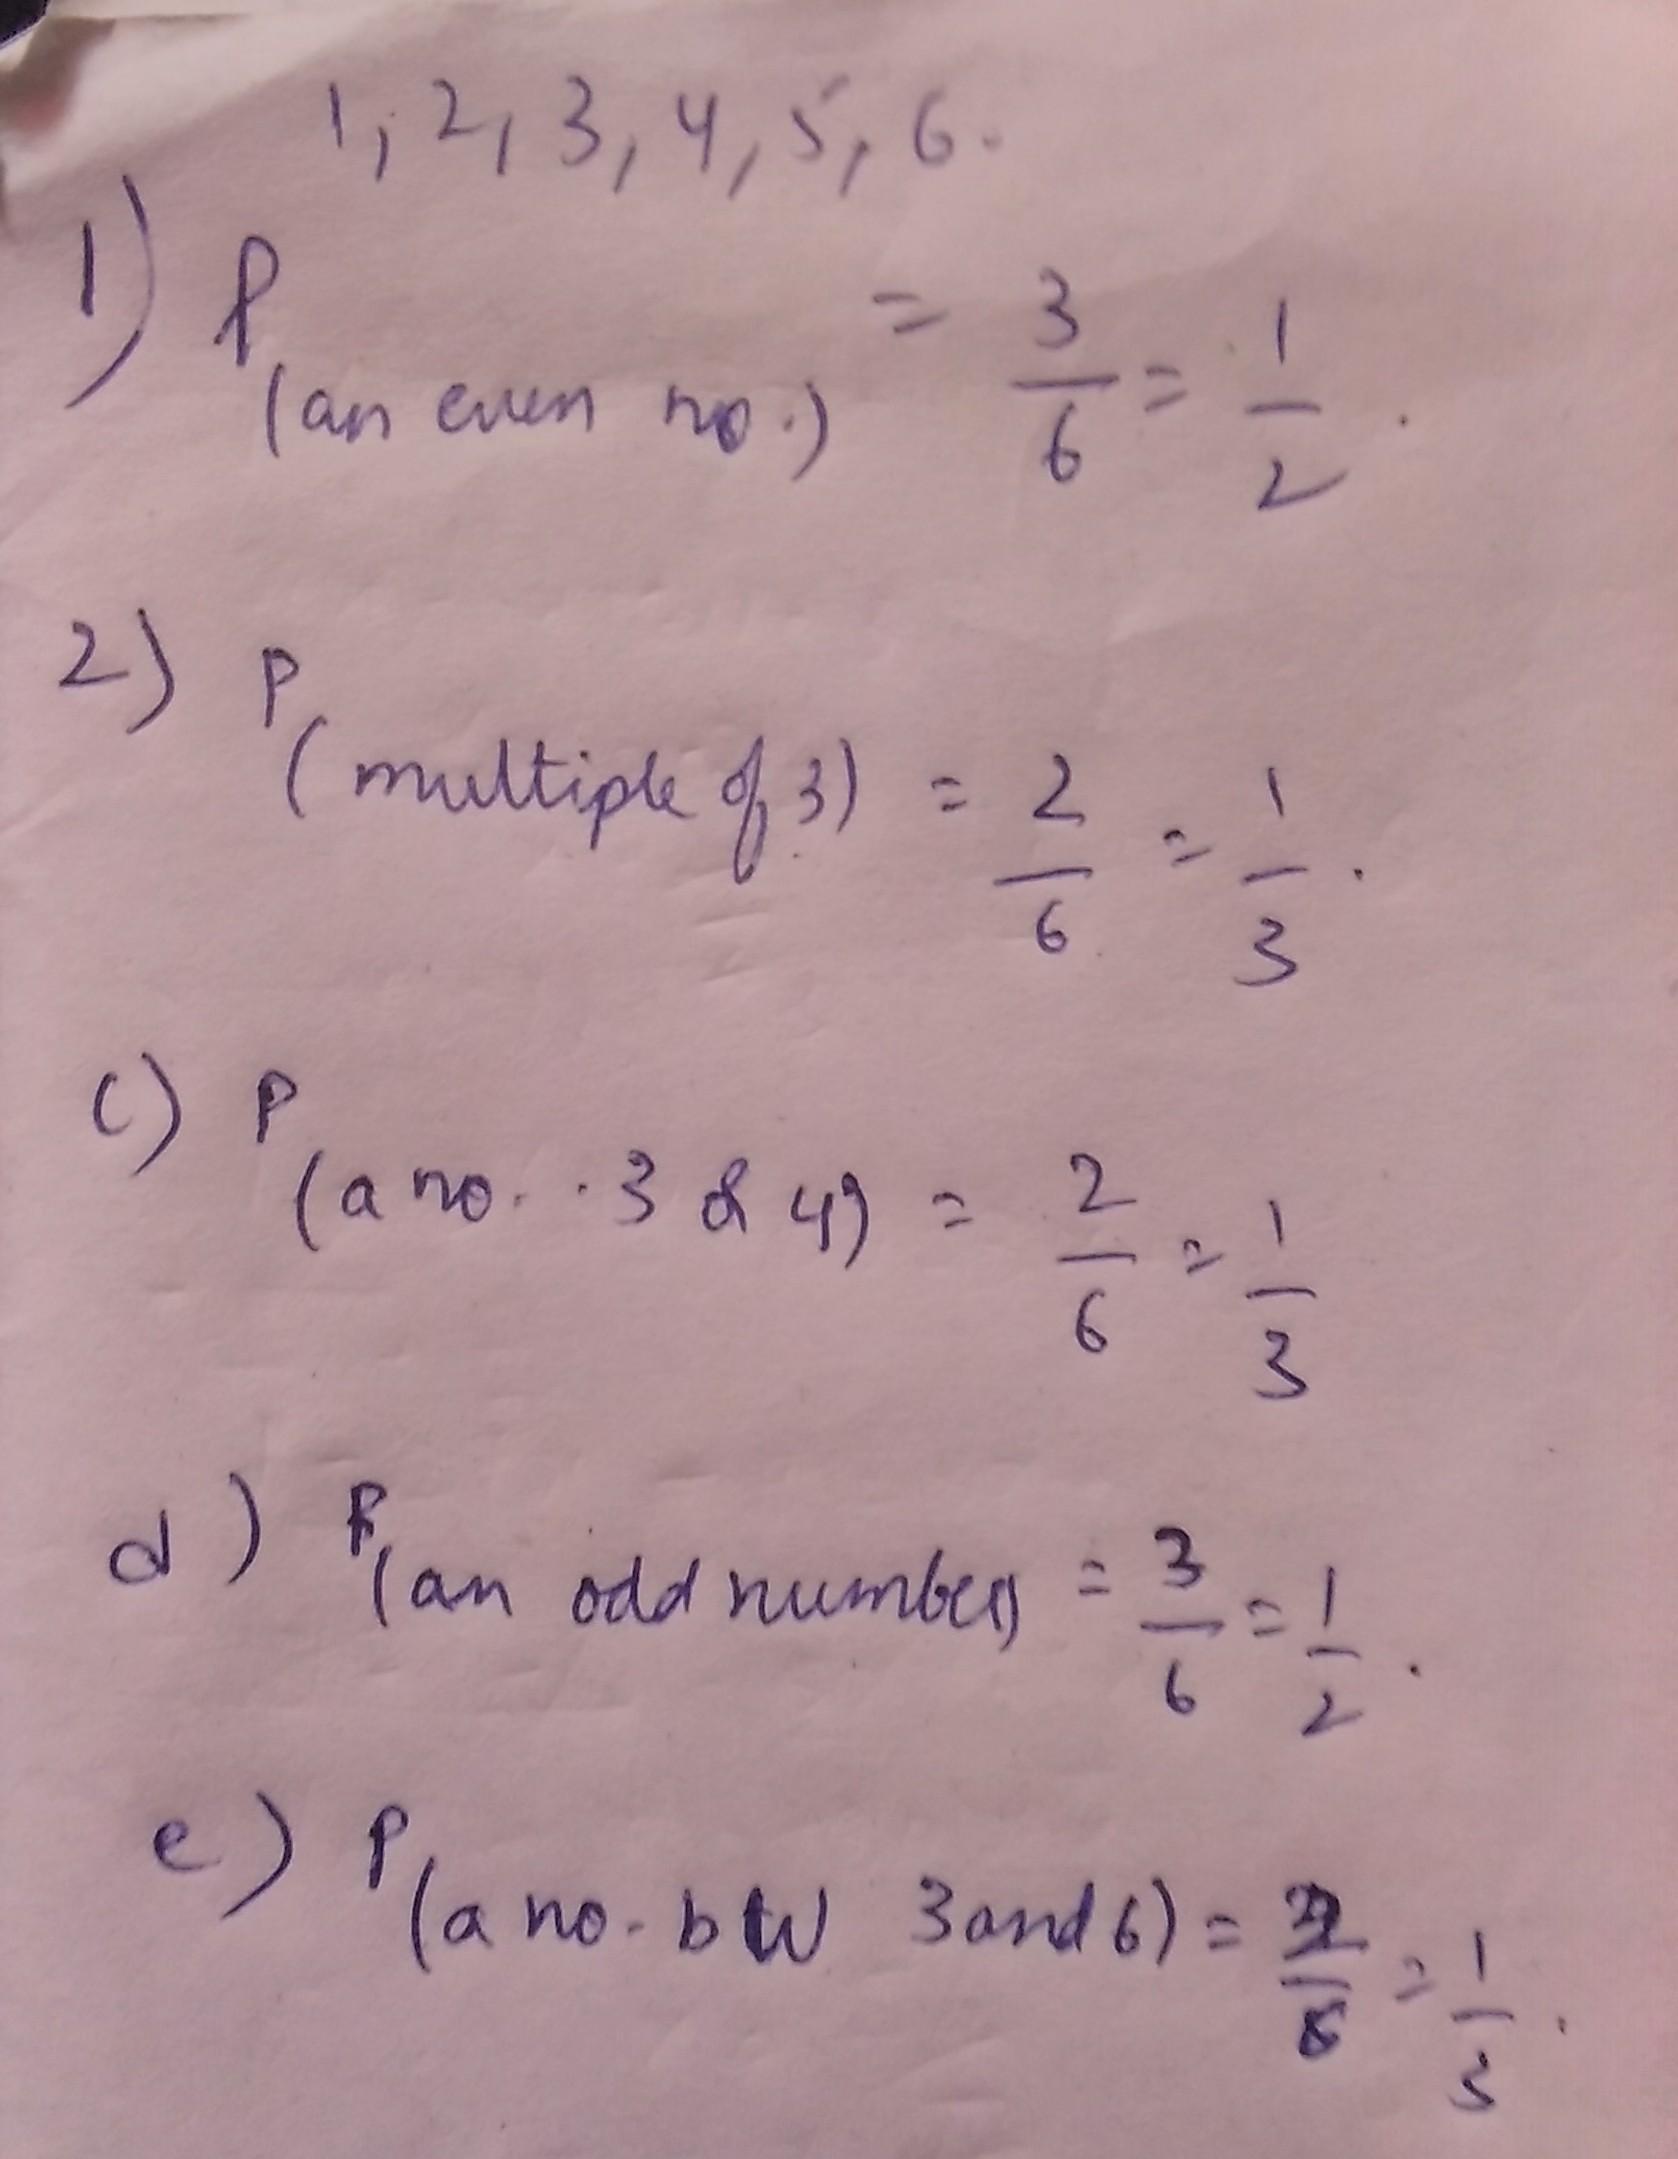 1, 2, 3, 4, 5, 6.
1) P(an even no.) = 3/6 = 1/2.
2) P(multiple of 3) = 2/6 = 1/3.
c) P(a no. . 3 or 4) = 2/6 = 1/3
d) P(an odd number) = 3/6 = 1/2.
e) P(a no. b/w 3 and 6) = 2/6 = 1/3.